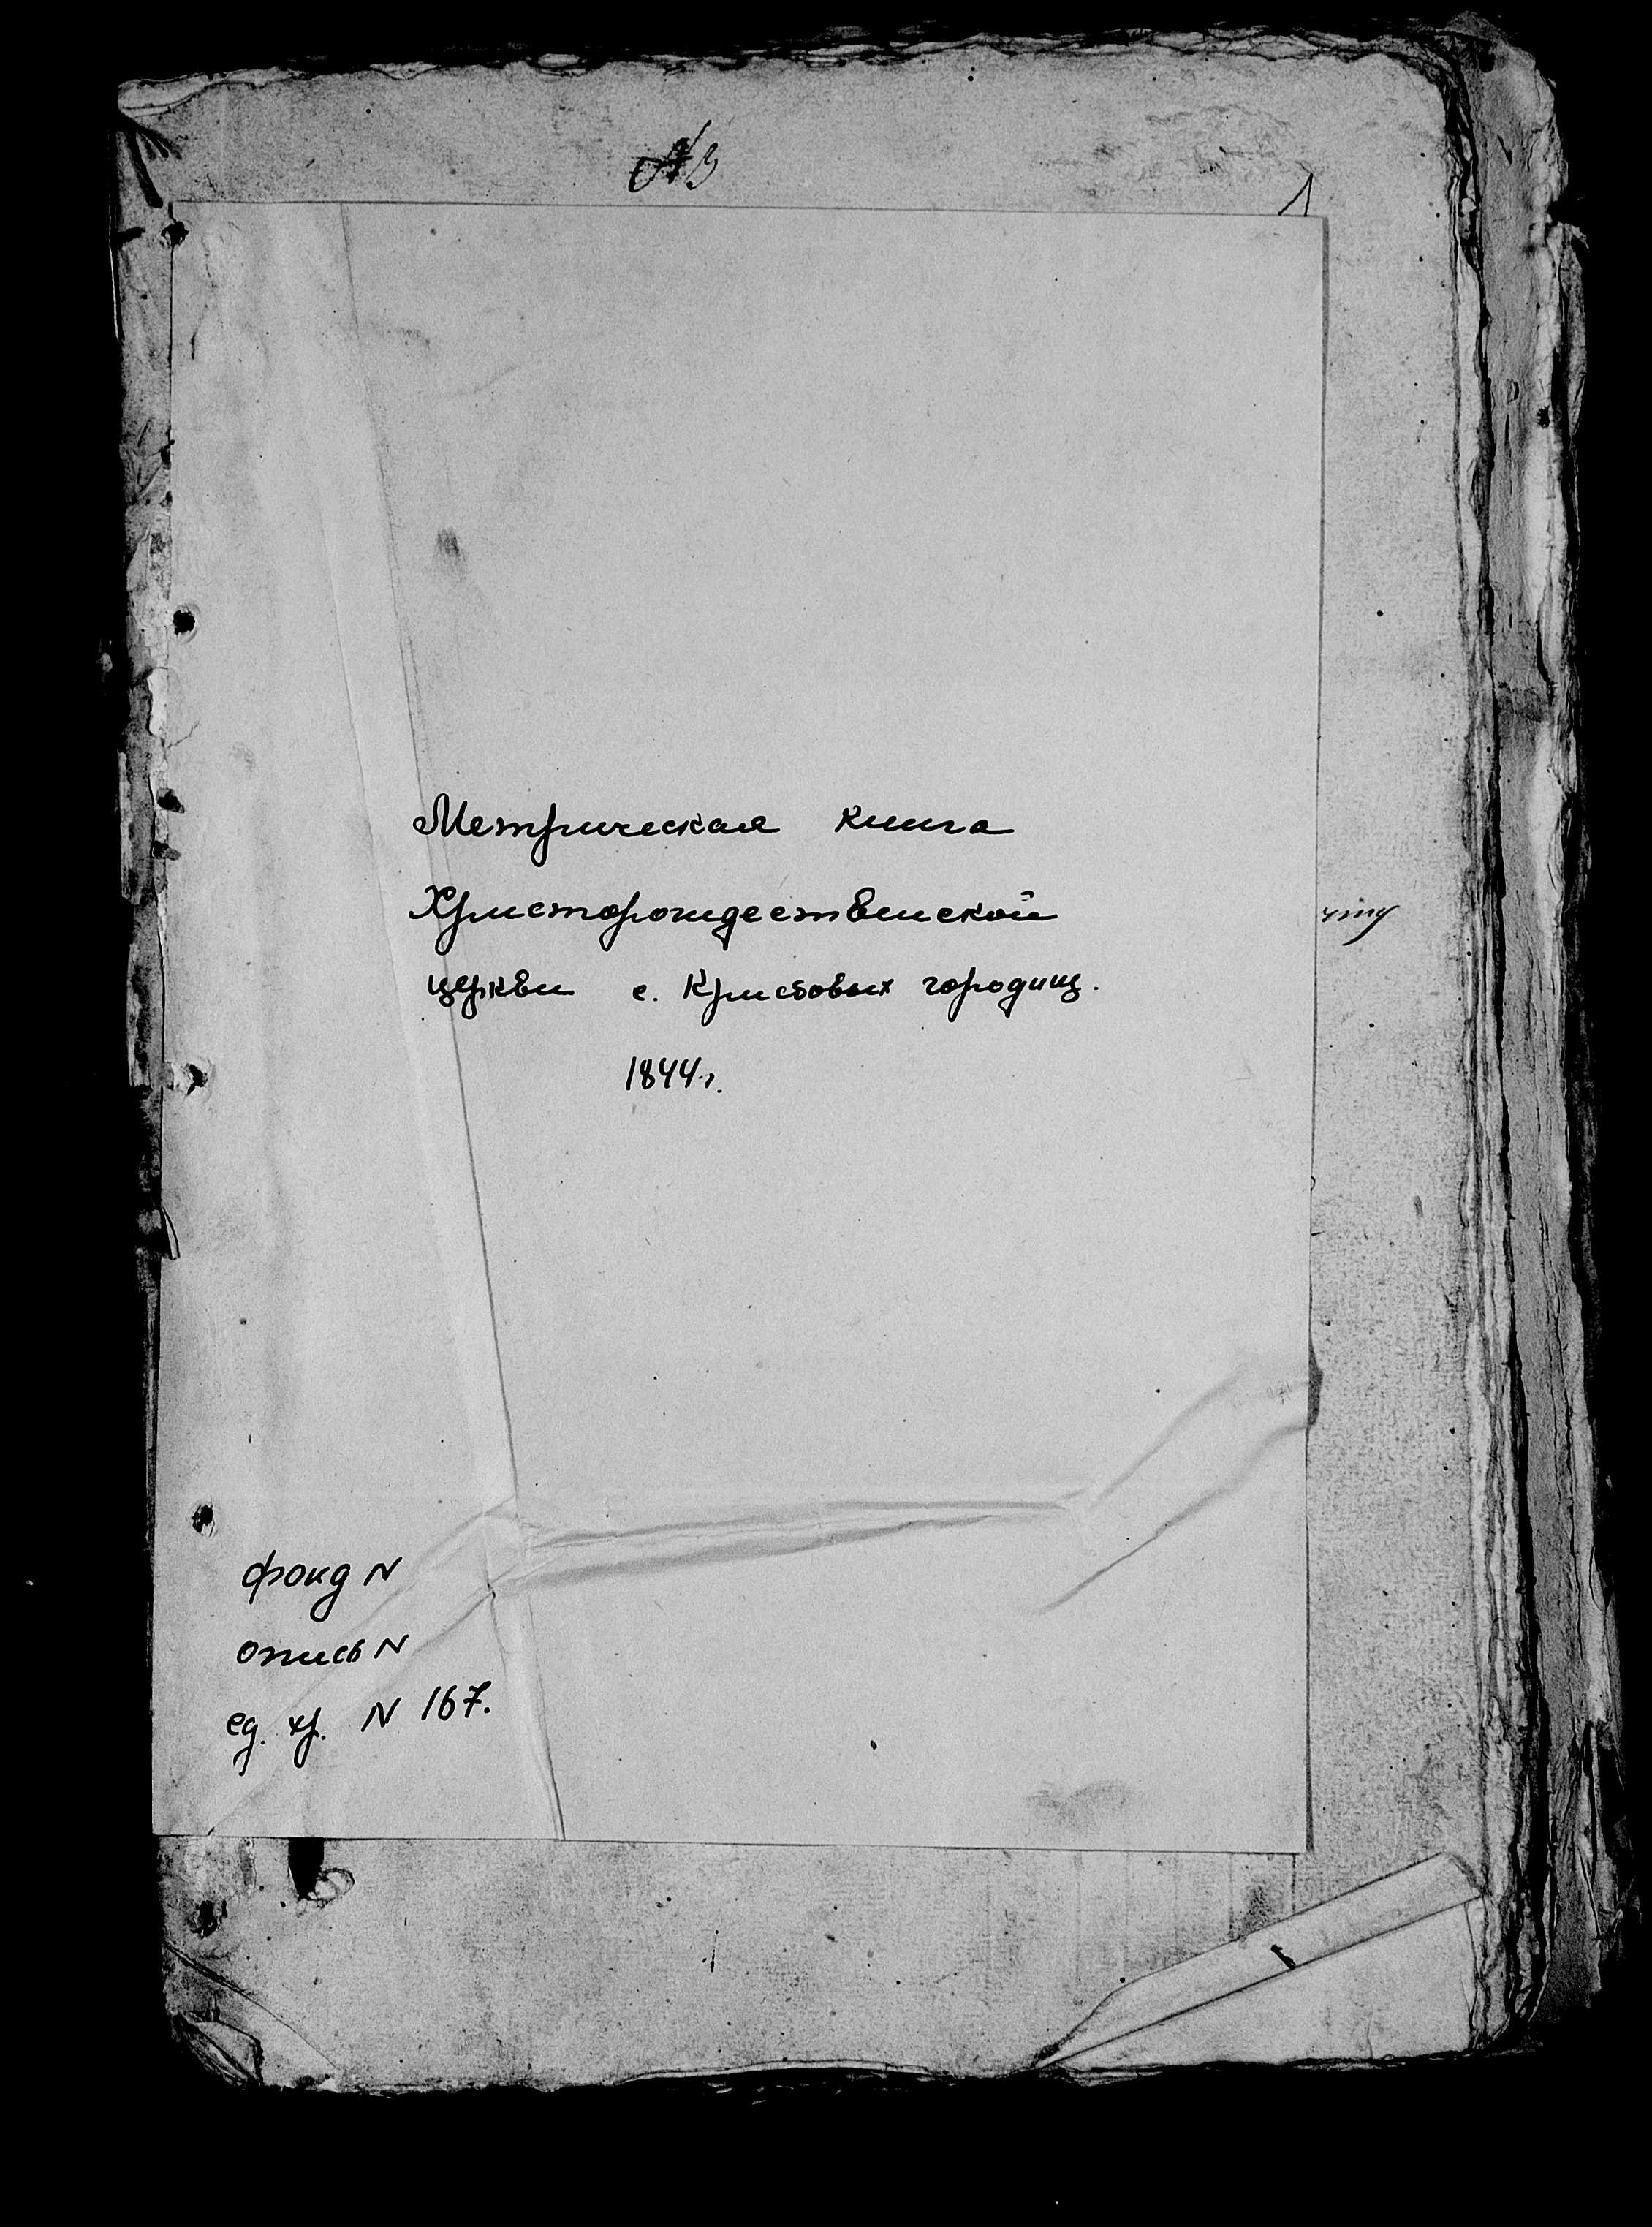 1
Метрическая книга
Христорождественской
церкви с. Кристовых городищ.
1844г.
фонд N
опись N
ед. хр. N 167.